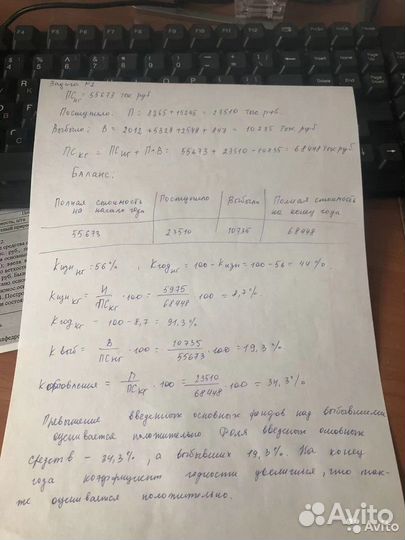 Задача №2
ПСнг = 55673 тыс. руб
Поступило: П = 8265+15245 = 23510 тыс. руб.
Выбыло: В = 2012 +5328 +2548 + 847 = 10735 тыс. руб
ПСкг = ПСнг + П-В = 55673 + 23510 - 10735 = 68448 тыс. руб.
Баланс:
Полная стоимость на начало года | Поступило | Выбыло | Полная стоимость на конец года
55673 | 23510 | 10735 | 68448
Кизн нг = 56 % , Кгод нг = 100 - Кизн = 100 - 56 = 44 %.
Кизн кг = И/ПСкг · 100 = 5975/68448 · 100 = 8,7 %
Кгод кг - 100 - 8,7 = 91.3 %
К выб = В/ПСнг · 100 = 10735/55673 · 100 = 19,3 %
Кобновления = П/ПСкг · 100 = 23510/68448 · 100 = 34,3 %
Превышение введенных основных фондов над выбывшими
оценивается положительно. Доля введеных основных
средств - 34,3 %, а выбывших 19,3 %. На конец
года коэффициент годности увеличился, что так-
же оценивается положительно.
Avito
Avito